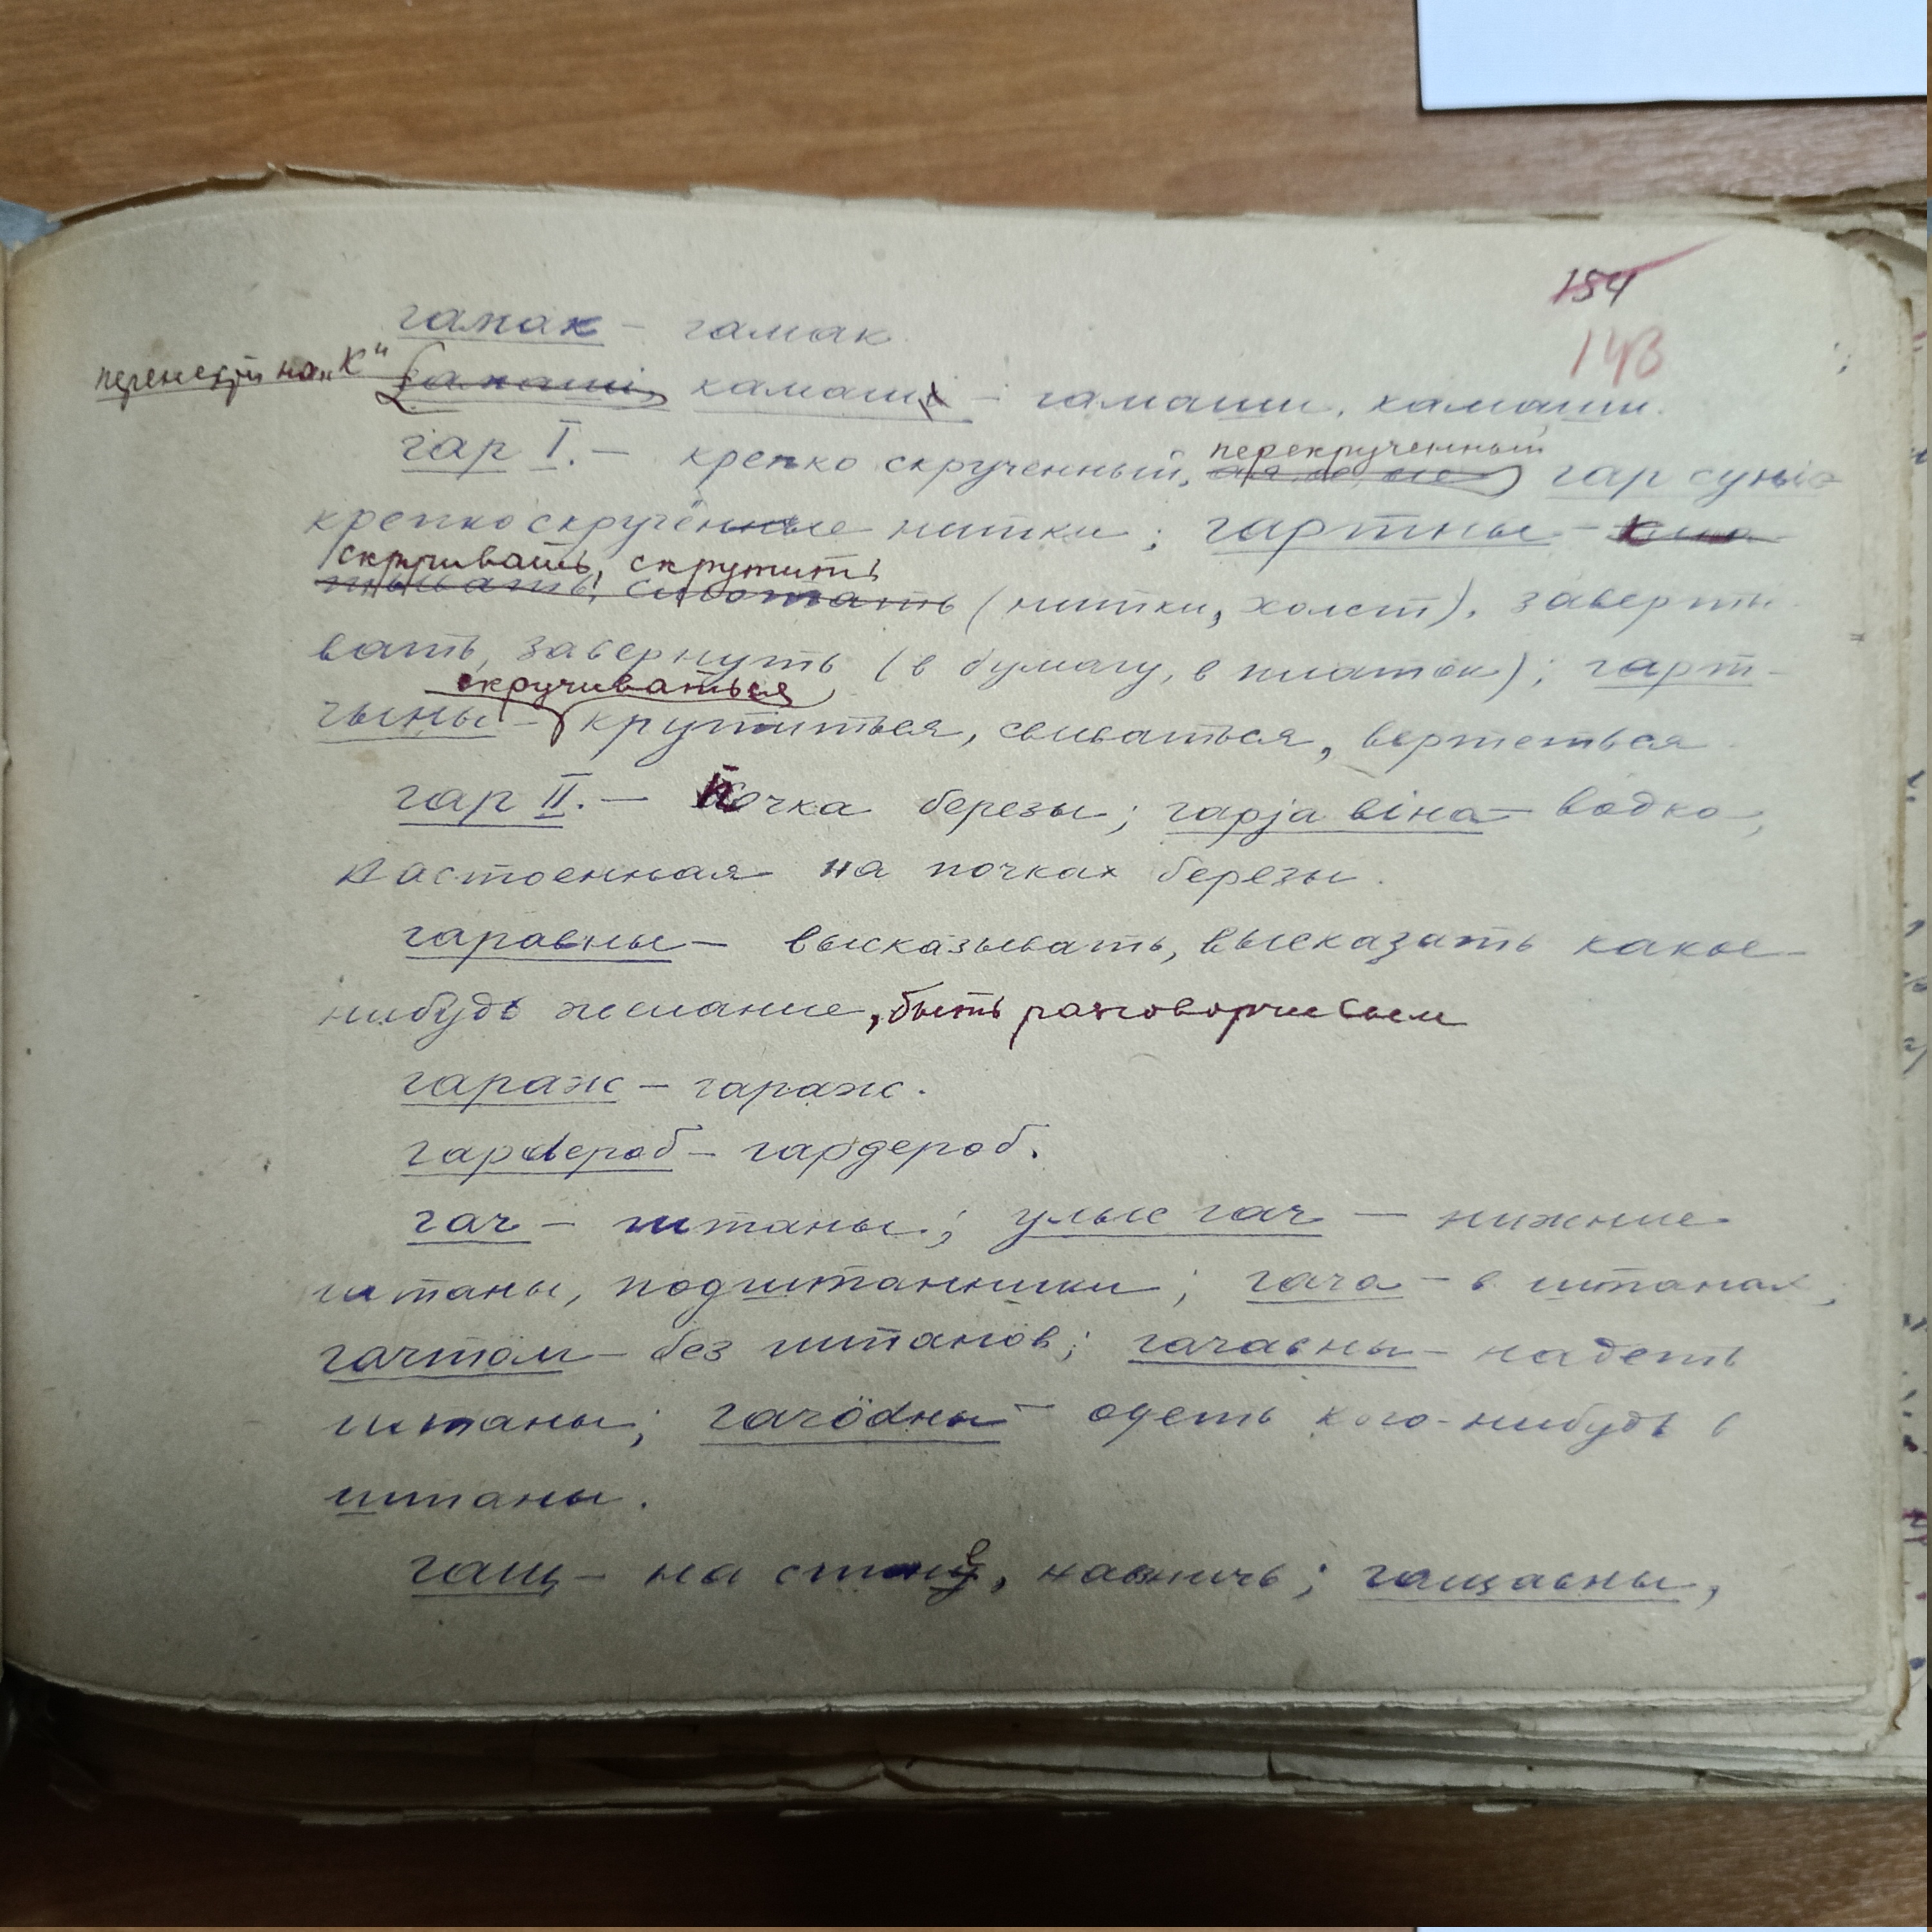 154
143
гамак – гамак.
перенести на „К“ гамаші, камаші – гамаши, камаши.
гар I. – крепко скрученный, перекрученный гар суніс
крепко скручённые нитки; гартны –
скручивать, скрутить
(нитки, холст), заверты-
вать, завернуть (в бумагу, в платок); гарт-
скручиваться,
чыны – крутиться, свиваться, вертеться.
гар II. – Почка березы; гарја віна – водка,
настоенная на почках березы.
гаравны – высказывать, высказать какое-
нибудь желание, быть разговорчивым
гараж – гараж.
гардероб – гардероб.
гач – штаны; улыс гач – нижние
штаны, подштанники; гача – в штанах;
гачтӧм – без штанов; гачавны – надеть
штаны; гачӧдны – одеть кого-нибудь в
штаны.
гащ – на спине, навзничь; гащавны,